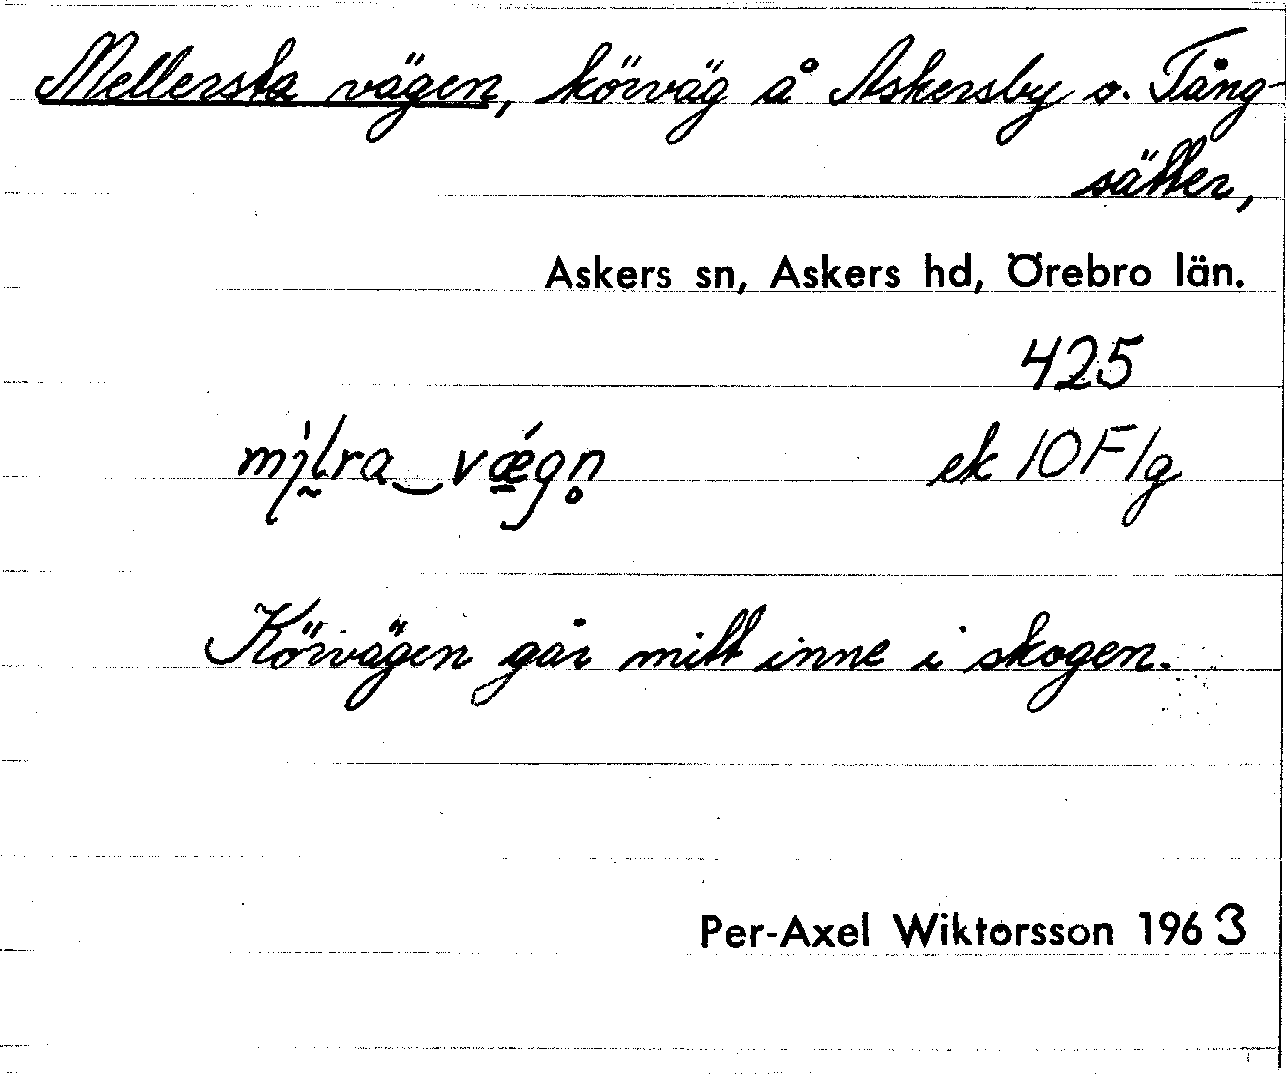 Mellersta vägen, körväg å Askersby o. Tång-
sätter,
Askers sn, Askers hd, Örebro län.
425
ek 10F1g
Körvägen går mitt inne i skogen.
Per-Axel Wiktorsson 1963